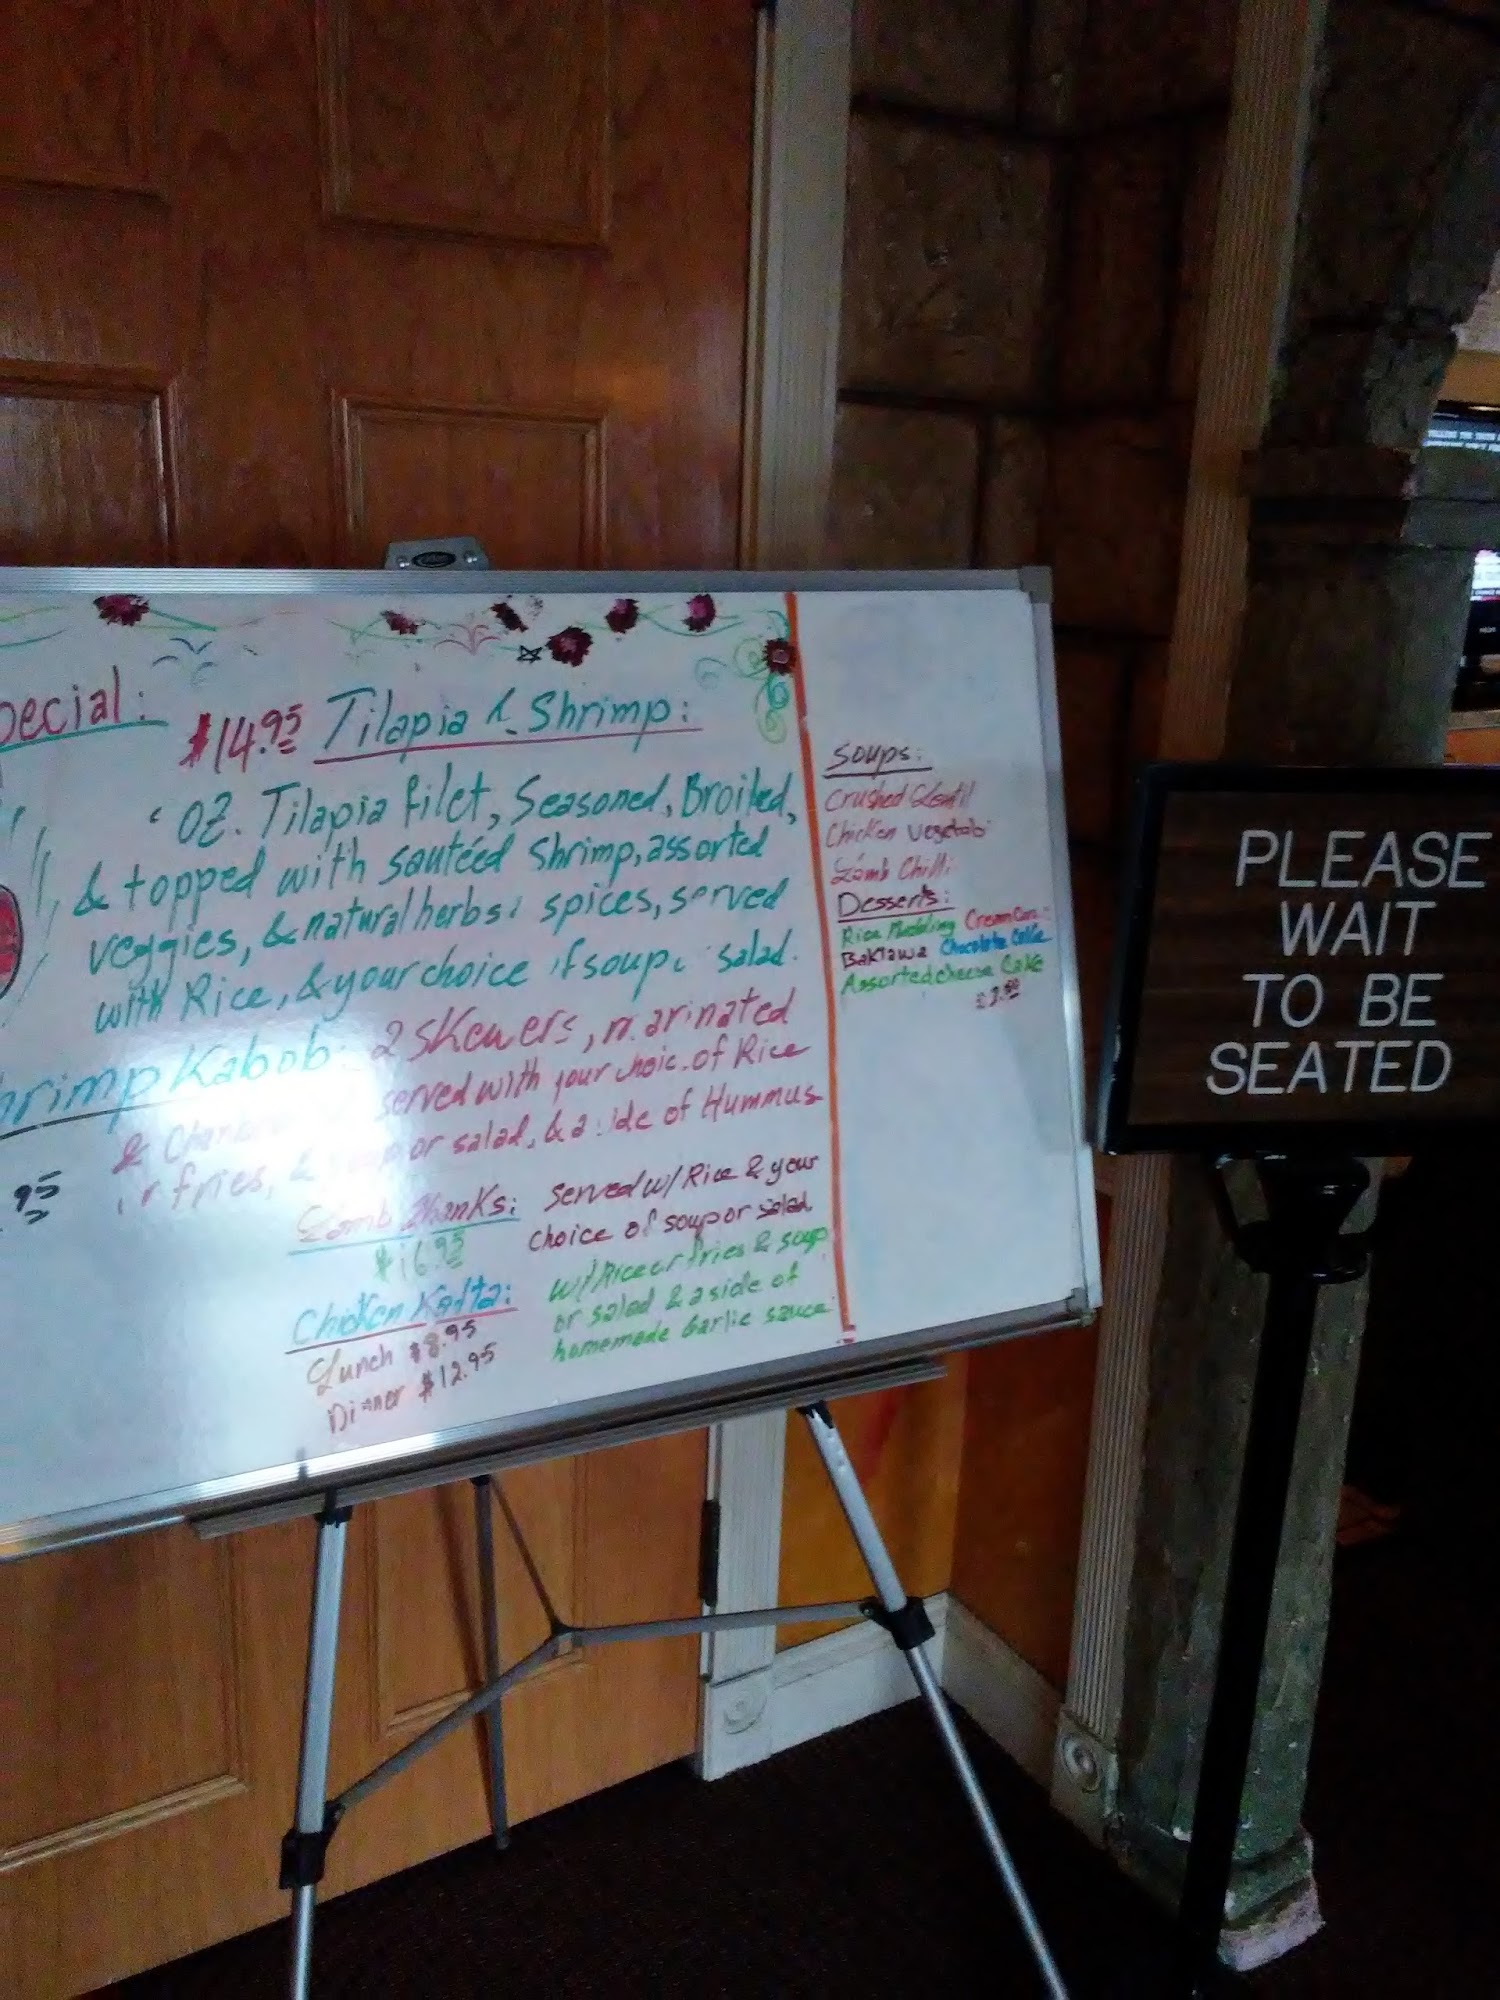 $14.95 Tilapia & Shrimp:
OZ. Tilapia filet, Seasoned, Broiled,
& topped with sautéed Shrimp, assorted
veggies, & natural herbs & spices, served
with Rice, & your choice of soup salad.
Kabob: 2 skewers, marinated
& served with your choice of Rice
or fries, & soup or salad, & a side of Hummus
.95
Lamb Shanks: Served w/ Rice & your
choice of soup or salad
$16.95
Chicken Kafta: w/ Rice or fries & soup
or salad & a side of
homemade Garlic sauce
Lunch $8.95
Dinner $12.95
Soups:
Crushed Lentil
Chicken
Lamb Chilli
Desserts:
Rice Pudding Cream
Baklawa Chocolate Cake
Assorted cheese Cake
PLEASE
WAIT
TO BE
SEATED